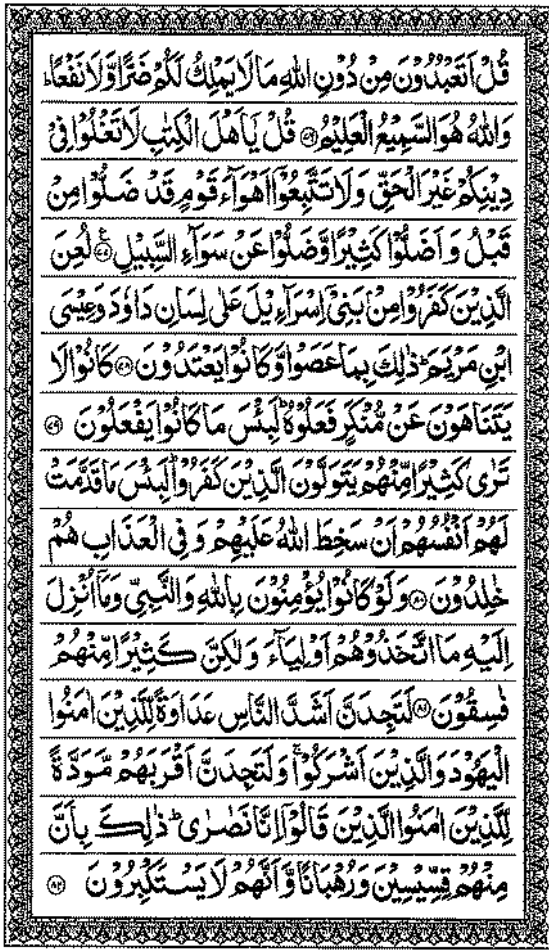 قُلْ اَتَعْبُدُوْنَ مِنْ دُوْنِ اللّٰهِ مَا لَا يَمْلِكُ لَكُمْ ضَرًّا وَّلَا نَفْعًا ؕ
وَاللّٰهُ هُوَ السَّمِيْعُ الْعَلِيْمُ ﴿۷۶﴾ قُلْ يٰۤاَهْلَ الْكِتٰبِ لَا تَغْلُوْا فِيْ
دِيْنِكُمْ غَيْرَ الْحَقِّ وَلَا تَتَّبِعُوْۤا اَهْوَآءَ قَوْمٍ قَدْ ضَلُّوْا مِنْ
قَبْلُ وَاَضَلُّوْا كَثِيْرًا وَّضَلُّوْا عَنْ سَوَآءِ السَّبِيْلِ ﴿۷۷﴾ ع لُعِنَ
الَّذِيْنَ كَفَرُوْا مِنْۢ بَنِيْۤ اِسْرَآءِيْلَ عَلٰى لِسَانِ دَاوٗدَ وَعِيْسَى
ابْنِ مَرْيَمَ ؕ ذٰلِكَ بِمَا عَصَوْا وَّكَانُوْا يَعْتَدُوْنَ ﴿۷۸﴾ كَانُوْا لَا
يَتَنَاهَوْنَ عَنْ مُّنْكَرٍ فَعَلُوْهُ ؕ لَبِئْسَ مَا كَانُوْا يَفْعَلُوْنَ ﴿۷۹﴾
تَرٰى كَثِيْرًا مِّنْهُمْ يَتَوَلَّوْنَ الَّذِيْنَ كَفَرُوْا ؕ لَبِئْسَ مَا قَدَّمَتْ
لَهُمْ اَنْفُسُهُمْ اَنْ سَخِطَ اللّٰهُ عَلَيْهِمْ وَفِي الْعَذَابِ هُمْ
خٰلِدُوْنَ ﴿۸۰﴾ وَلَوْ كَانُوْا يُؤْمِنُوْنَ بِاللّٰهِ وَالنَّبِيِّ وَمَاۤ اُنْزِلَ
اِلَيْهِ مَا اتَّخَذُوْهُمْ اَوْلِيَآءَ وَلٰكِنَّ كَثِيْرًا مِّنْهُمْ
فٰسِقُوْنَ ﴿۸۱﴾ لَتَجِدَنَّ اَشَدَّ النَّاسِ عَدَاوَةً لِّلَّذِيْنَ اٰمَنُوا
الْيَهُوْدَ وَالَّذِيْنَ اَشْرَكُوْا ۚ وَلَتَجِدَنَّ اَقْرَبَهُمْ مَّوَدَّةً
لِّلَّذِيْنَ اٰمَنُوا الَّذِيْنَ قَالُوْۤا اِنَّا نَصٰرٰى ؕ ذٰلِكَ بِاَنَّ
مِنْهُمْ قِسِّيْسِيْنَ وَرُهْبَانًا وَّاَنَّهُمْ لَا يَسْتَكْبِرُوْنَ ﴿۸۲﴾